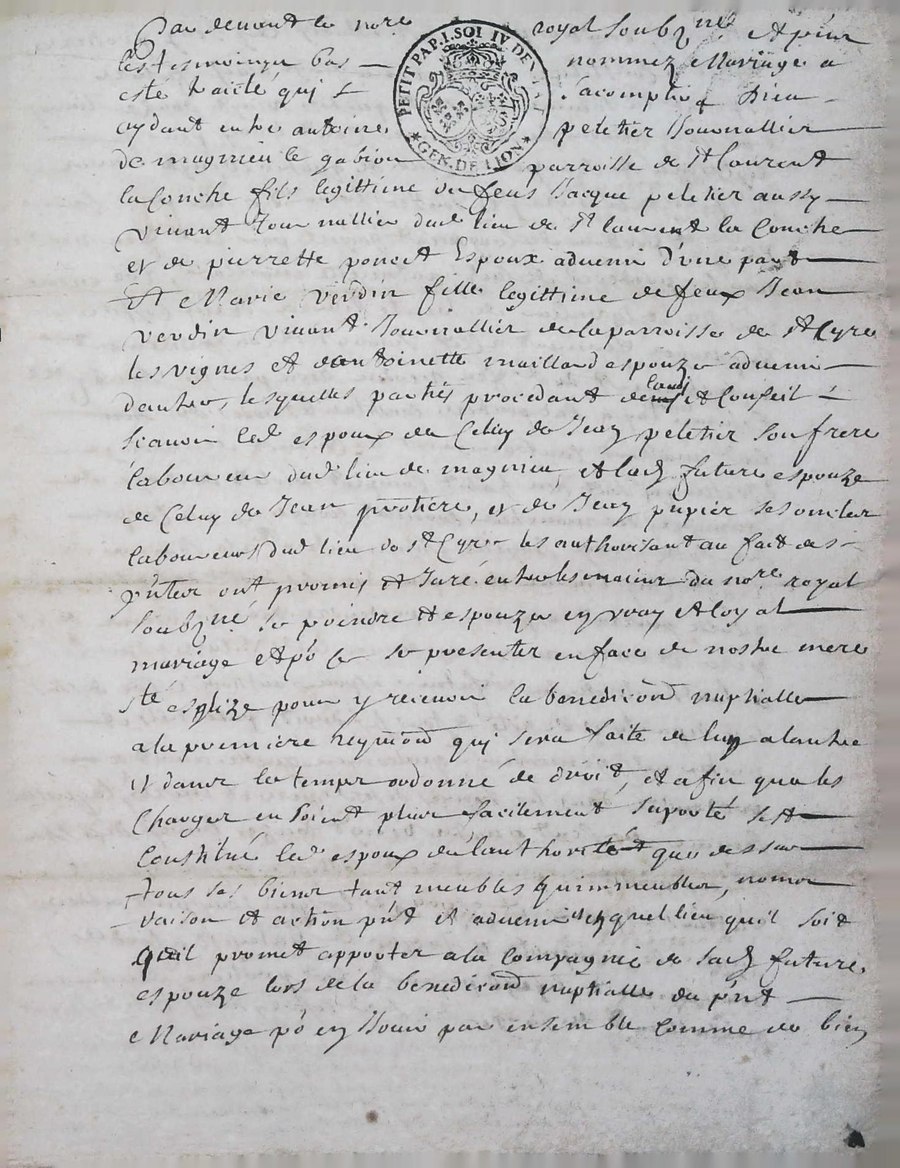 Par devant le no^re royal soubz^né et p'ñts
les tesmoings bas nommez Mariage a
esté traité qui s' acomplira Dieu
aydant entre antoine peletier Journallier
de magnieu le gabion parroisse de S^t laurent
la Conche fils legittime de feus Jacque peletier aussy
vivant Journallier dud lieu de S^t laurent la Conche
et de pierrette poncet Espoux advenir d'une part
Et Marie verdin fille legittime de feux Jean
verdin vivant Journallier de la parroisse de S^t Cyre
les vignes et dantoinette maillard espouze advenir
dautre, lesquelles parties procedant de ladvis et Conseil
scavoir led espoux de Celuy de Jean peletier son frere
laboureur dud lieu de magnieu, et lad future espouze
de Celuy de Jean protiere, et de Jean papier ses oncles
laboureurs dud lieu de S^t Cyre les authorisant au fait des
p'ntes ont promis et Juré entre les mains du no^re royal
soubz^né se prendre et espouzer en vray et loyal
mariage et po Ce se presenter en face de nostre mere
s^té esglize pour y recevoir la benedicõn nuptialle
a la premiere reqmõn qui sera faite de lun a lautre
et dans le temps ordonné de droit, et afin que les
Charges en soient plus facilement suporté sest
Constitué led espoux de lauthorité que dessus
tous ses biens tant meubles quimmeubles, noms
raison et action p'nt et advenir en quel lieu quil soit
quil promet apporter a la Compagnie de sad future
espouze lors de la benedicõn nuptialle du p'nt
Mariage po en Jouir par ensemble Comme de bien
PETIT PAP. I. SOL IV DE
GEN. DE LION